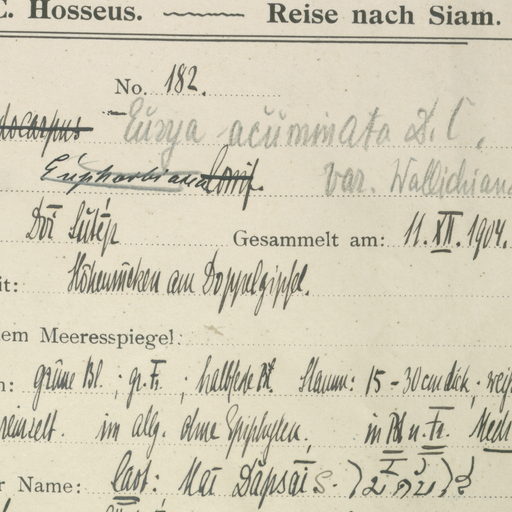 C. Hosseus. Reise nach Siam.
No. 182.
docarpus Eurya acuminata D. C.
Euphorbiacea Conif. var. Wallichiana
Doi Sutép Gesammelt am: 11. XII. 1904.
it: Höhenrücken am Doppelgipfel.
em Meeresspiegel:
n: grüne Bl. ; gr. Fr. ; halbfeste Bl. Stamm: 15-30 cm dick, weiß
reinzelt. im allg. ohne Epiphyten, in Bl u. Fr. Medi
r Name: Laot: Mai